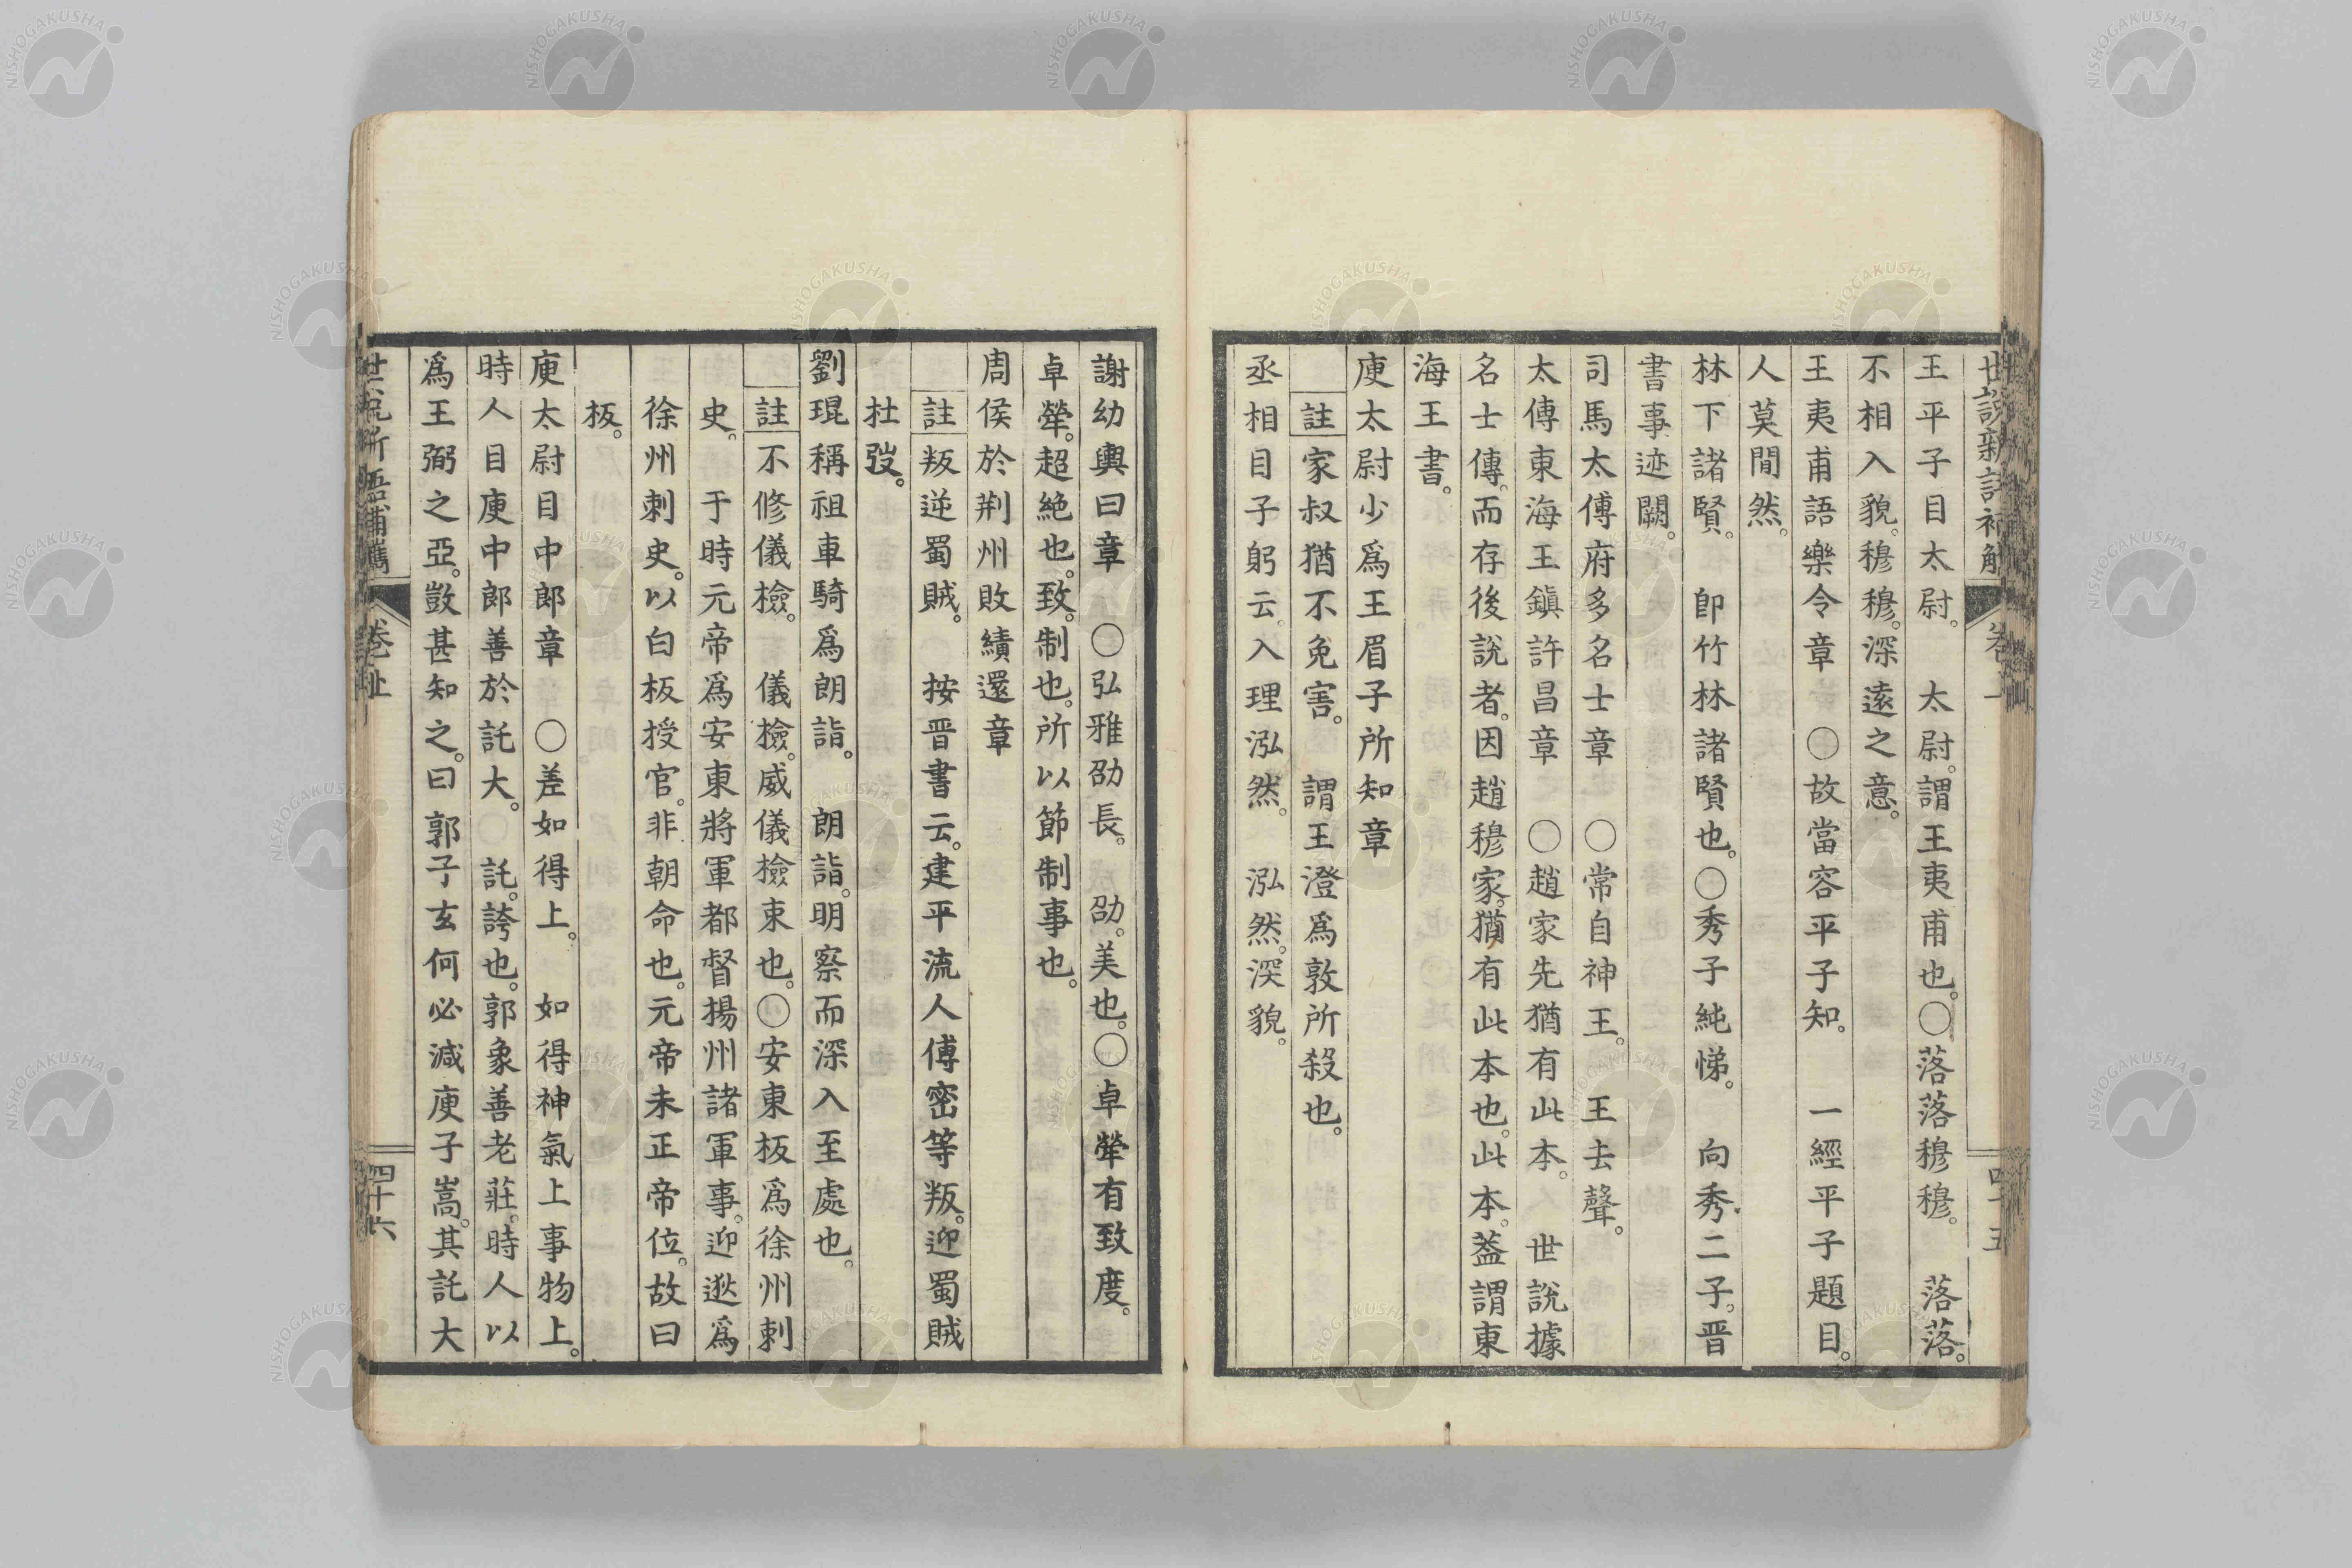 王平子目太尉。太尉。謂王夷甫也。○落落穆穆。落落。
不相入貌。穆穆。深遠之意。
王夷甫語樂令章○故當容平子知。一經平子題目。
人莫間然。
林下諸賢。卽竹林諸賢也。○秀子純悌。向秀二子。晋
書事迹闕。
司馬太傅府多名士章○常自神王。王去聲。
太傅東海王鎭許昌章○趙家先猶有此本。世說據
名士傳。而存後說者。因趙穆家。猶有此本也。此本。葢謂東
海王書。
庾太尉少爲王眉子所知章
註家叔猶不免害。謂。王澄爲敦所殺也。
丞相目子躬云。入理泓然。泓然。深貌。
四十五
謝幼輿曰章○弘雅劭長。劭。美也。○卓犖有致度。
卓犖。超絶也。致。制也。所以節制事也。
周侯於荆州敗績還章
註叛逆蜀賊。按晋書云。建平流人傅密等叛。迎蜀賊
杜弢。
劉琨稱祖車騎爲朗詣。朗詣。明察而深入至處也。
註不修儀檢。儀檢。威儀檢束也。○安東板爲徐州刺
史。于時元帝爲安東將軍都督揚州諸軍事。迎逖爲
徐州刺史。以白板授官。非朝命也。元帝未正帝位。故曰
板。
庾太尉目中郎章○差如得上。如得神氣上事物上。
時人目庾中郎善於託大。託。誇也。郭象善老莊。時人以
爲王弼之亞。敳甚知之。曰郭子玄何必減庾子嵩。其託大
四十六